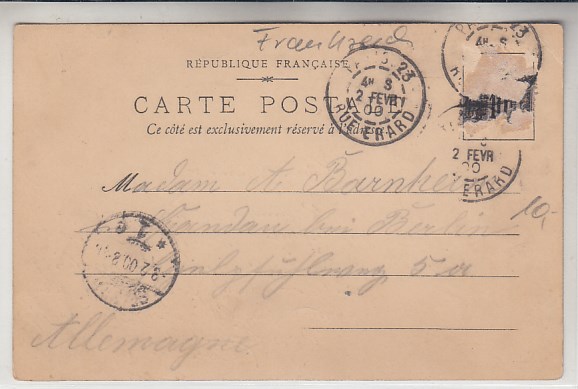 Frankreich
RÉPUBLIQUE FRANÇAISE
CARTE POSTALE
Ce côté est exclusivement réservé à l'adresse
PARIS 23
4E S
2 FEVR
00
RUE ERARD
2 FEVR
00
ERARD
10,-
Madam A.
Spandau bei Berlin
5a
3.2.00.8
Allemagne